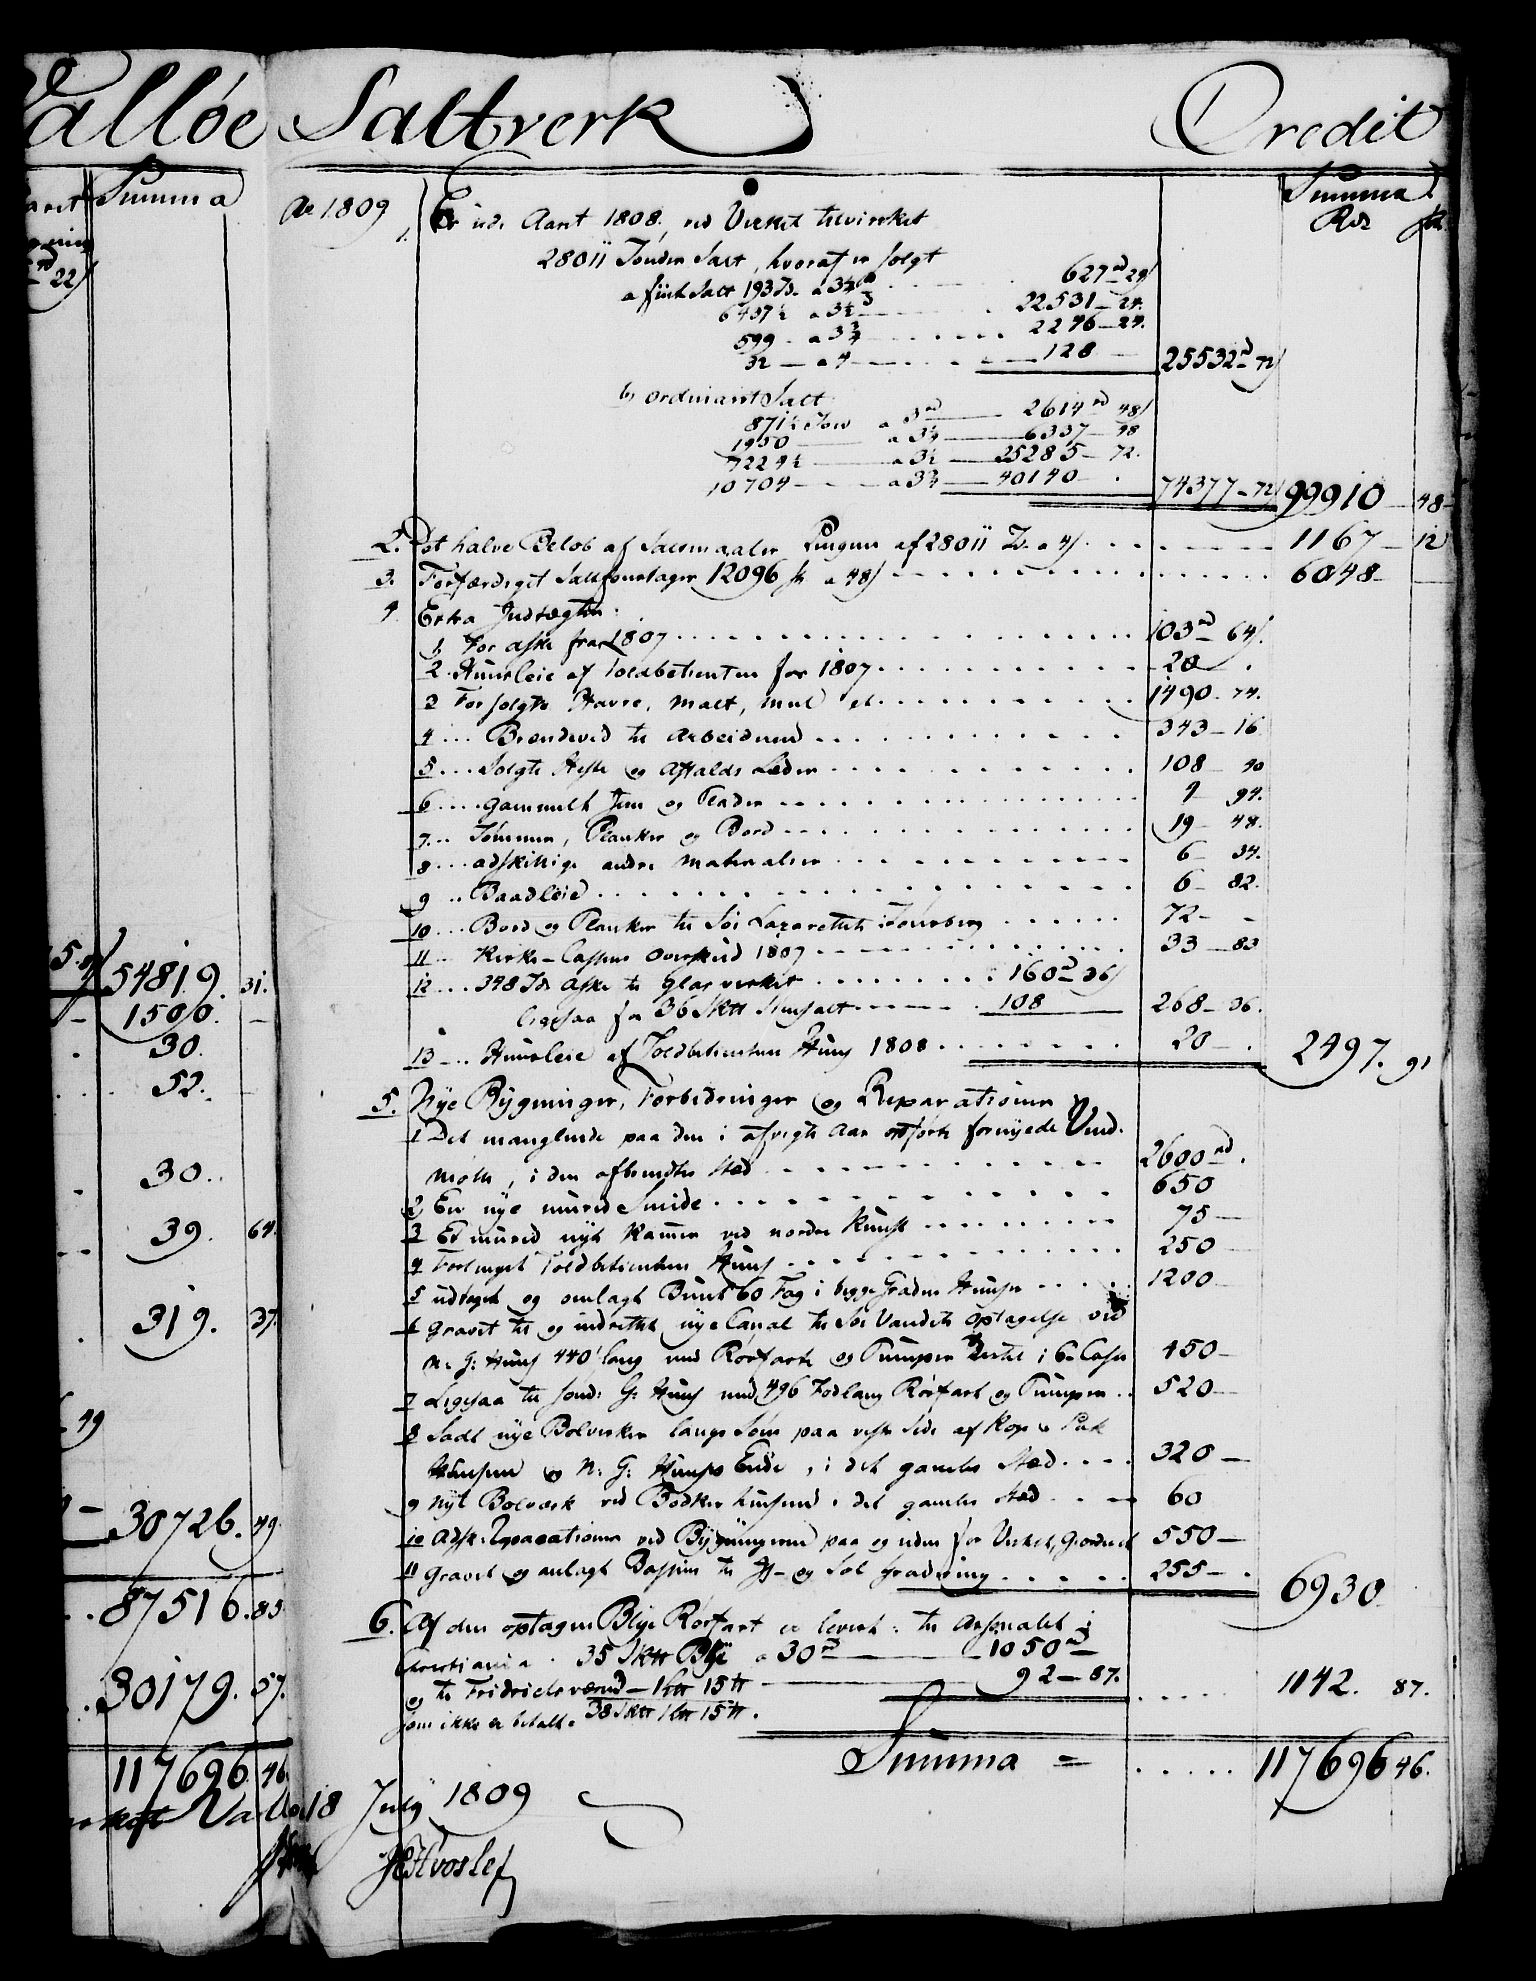 Valløe Saltverk Credit
Summa
Ao 1809
Summa
Rdr
1. Er udi Aaret 1808 ved Verket tilvirket
28011 Tønder Salt, hvoraf er solgt
a fiint Salt 193 Td. a 3¼ rd 627 rd 24
6437½ a 3½ 22531 - 24.
599 a 3¾ 2246 - 24.
32 - a 4 128 25532 rd 72
b, ordinairt Salt
871½ Tønd a 3 rd 2614 rd 48
1950 a 3¼ 6337 - 48
7224½ a 3½ 25285 - 72.
10704 a 3¾ 40140 74377 - 72 99910 - 48
2. Det halve Beløb af Saltmaaler Pengene af 28011 Td. a 4 1167 - 12
3. Forfærdiget Salt 12096 st a 48 6048 -
4 Extra Indtægter
1, For Aske fra 1807 103 rd 64
2. Huusleie af Toldbetienten for 1807 20
3 For solgte Havre, Malt, Meel 1490. 74.
4 Brændeved til Arbeidere 343 - 16
5 Solgte Heste og Affalds Læder 108 - 40
6 gammelt Jern og Plader 9 94.
7 Tømmer, Planker og Bord 19 - 48.
8 adskillige andre Materialier 6 - 34.
9 Baadleie 6 - 82.
10 Bord og Planker til Søe Lazarettet i Tønsberg 72 -
11 Kirke-Cassens Overskud 1807 33 - 83
12 348 Td Aske til Glasverket 160 rd 36
ligesaa for 36 Sktt 108 268 - 36.
13 Huusleie af Toldbetientens Huus 1808 20 - 2497. 91
5. Nye Bygninger, Forbedringer og Reparationer
1 Det manglende paa den i afvigte Aar opførte fornyede Vind-
mølle, i den afbrændtes Sted 2600 rd
2, En nye mured Smidie 650
3 Et mured nyt Kammer ved nordre Kunst 75 -
4 Forlenget Toldbetientens Huus 250
5 udtaget og omlagt Bund 60 Fag i begge Grader Huuser 1200
6 Gravet til og indrettet nye Canal til Søe Vandets Optagelse ved
N: G: Huus 440' lang med Rørfart og Pumper 450 -
7 Ligesaa til Sønd: G: Huus med 496 Fod lang Rørfart og Pumper 520
8 Sadt nye Bolverker langs Søen paa vestre Side af Kog
Huusene og N: G: Huuses Ende, i det gamles Sted 320 -
9 Nyt Bolverk ved Bødker huusene i det gamles Sted 60
10 Adsk. Reparationer ved Bygningerne paa og uden for Verket, 550 -
11 Gravet og anlagt Bassin til Iis- og Sol Gradering 255 - 6930
6. Af den optagne Blye Rørfart er leveret: til Arsenalet i
Christiania 35 Sktt Blÿe a 30 rd 1050 rd
og til Fridrichsværn - 1 Ltt 15 tt 92 - 87. 1142. 87.
som ikke er betalt. 38 Sktt 1 Ltt 15 tt.
Summa = 117696 46.
54819. 31.
1500. -
30.
52. -
30.
39. 64.
319. 37.
49
30726. 49.
87516. 83
30179. 57.
117696. 46
Vallø 18 July 1809
JCHvoslef